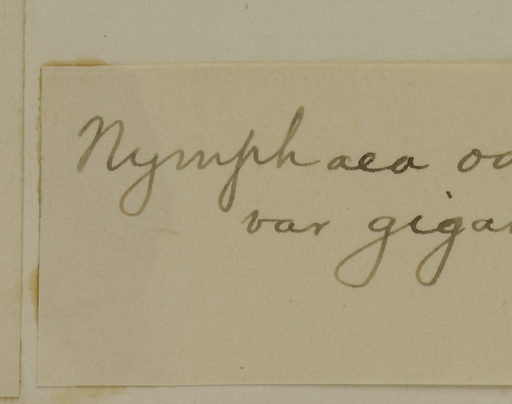 Nymphaea od
var gigan